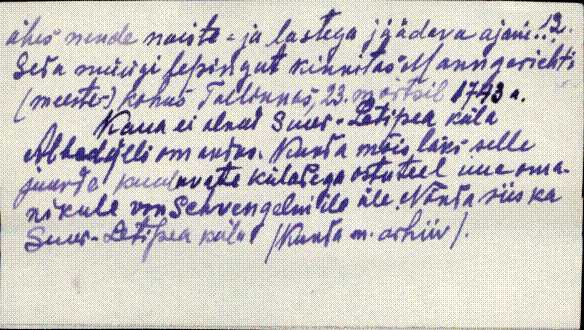 ühes nende naiste- ja lastega jäädava ajani. 12.
Seda müügi lepingut kinnitas Manngericht'i
(meeste-) kohus Tallinnas, 23. märtsil 1743 a.
Kaua ei olnud Suur-Letipea küla
omandus. Kunda mõis läks selle
juurde kuuluvate küladega ostuteel uue oma-
nikule von üle. Nõnda siis ka
Suur-Letipea küla (Kunda m. arhiiv).